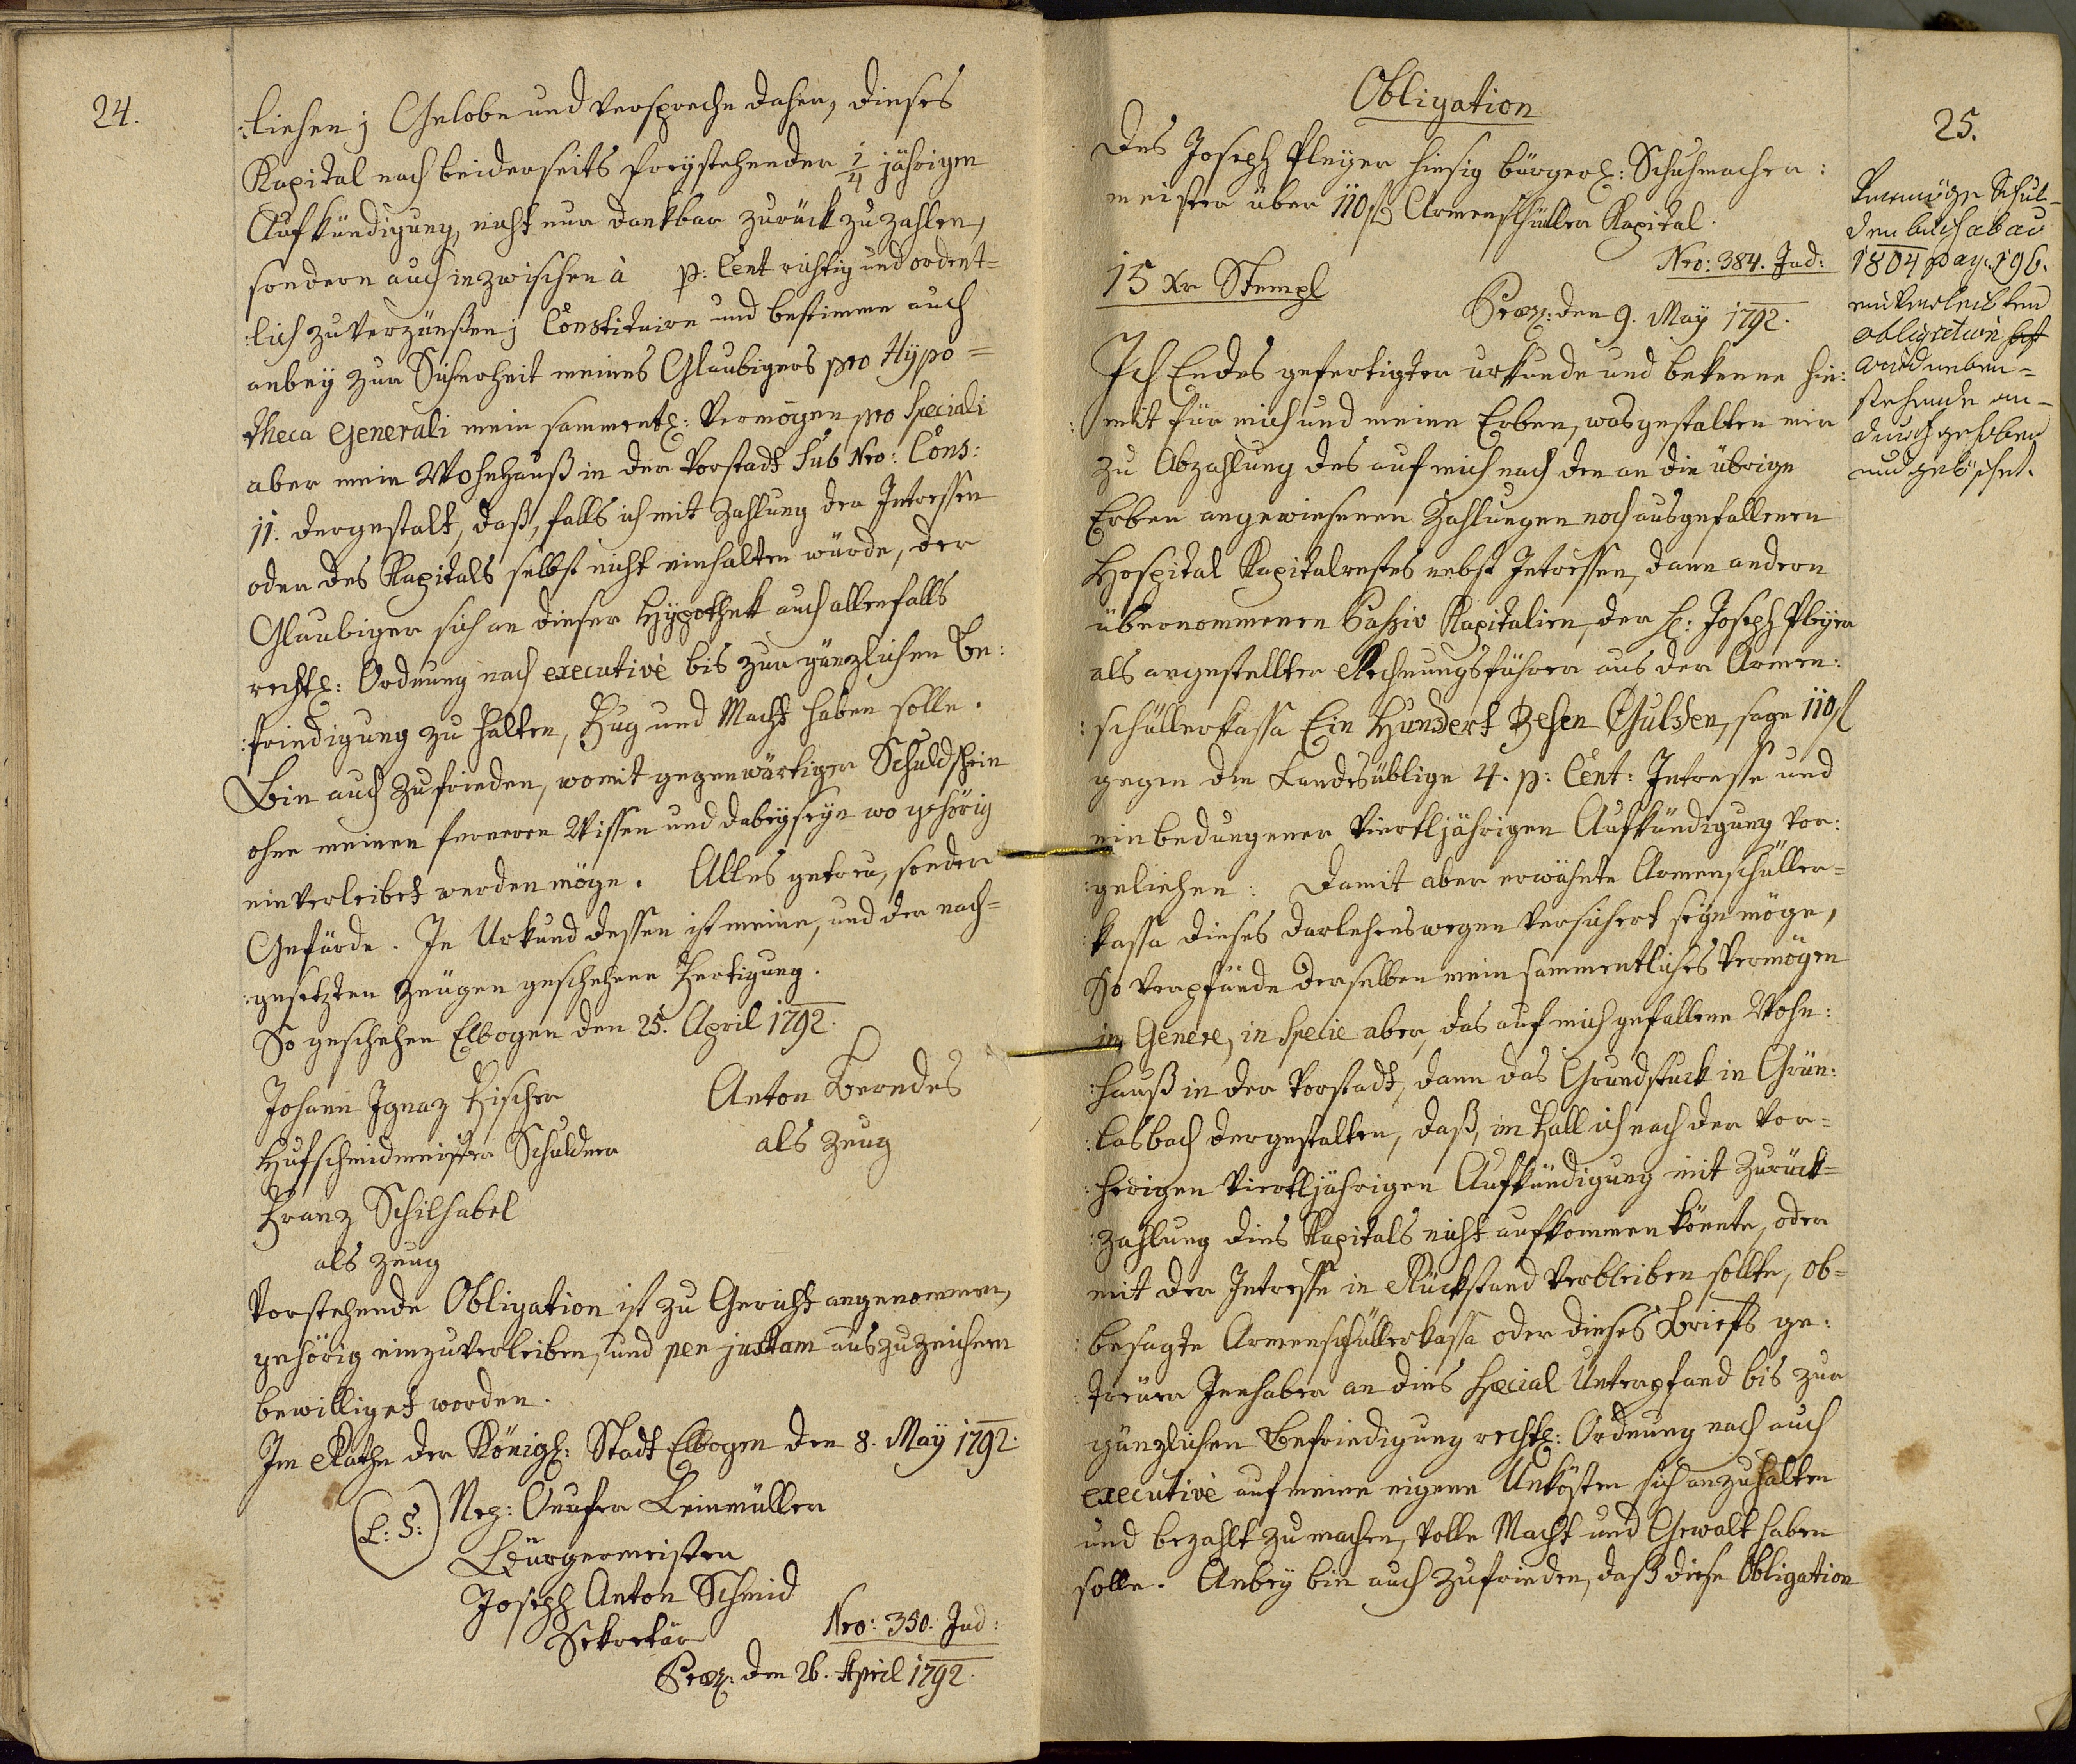 24.
:liehen; Gelobe und verspreche daher, dieses
Kapital nach beiderseits freystehender 1/4 jährigen
Aufkündigung, nicht nur dankbar zurück zu zahlen,
sondern auch inzwischen à p: Cent richtig und ordent=
:lich zu verzünßen; Constituire und bestimme auch
anbey zur Sicherheit meines Glaubigers pro Hypo=
theca Generali mein sammentl: Vermögen pro Speciali
aber mein Wohnhauß in der Vorstadt sub Nro: Cons:
11. dergestalt, daß, falls ich mit Zahlung der Intressen
oder des Kapitals selbst nicht einhalten würde, der
Glaubiger sich an dieser Hypothek auch allenfalls
rechtl: Ordnung nach executivè bis zur gänzlichen Be:
:friedigung zu halten, Fug und Macht haben solle.
Bin auch zufrieden, womit gegenwärtiger Schuldschein
ohne meinen ferneren Wissen und dabeyseyn wo gehörig
einverleibet werden möge. Alles getreu, sonder
Gefärde. In Urkund dessen ist meine, und der nach=
:gesetzten Zeugen geschehene Fertigung.
So geschehen Elbogen den 25. April 1792.
Johann Ignaz Fischer Anton Berndes
Hufschmidmeister Schuldner als Zeug
Franz Schilhabel
als Zeug
Vorstehende Obligation ist zu Gericht angenommen,
gehörig einzuverleiben, und per justam auszuzeichnen
bewilliget worden.
Im Rathe der Königl: Stadt Elbogen den 8. May 1792.
(L: S:) Nep: Onufer Leinmüller
Bürgermeister
Joseph Anton Schmid
Sekretär Nro: 350. Jud:
Præs: den 26. April 1792.
Obligation
25.
Des Joseph Pleyer hiesig bürgerl: Schuhmacher:
meister über 110 fl Armenschüller Kapital.
Nro: 384. Jud:
15 Xr Stempl
Præs: den 9. May 1792.
Ich Endes gefertigter urkunde und bekenne hie:
:mit für mich und meine Erben, was gestalten mir
zu Abzahlung des auf mich nach den an die übrige
Erben angewiesenen Zahlungen noch ausgefallenen
Hospital Kapitalrestes nebst Intressen, dann andern
übernommenen Passiv Kapitalien, der H: Joseph Pleyer
als angestellter Rechnungsführer aus der Armen:
:schüllerkassa Ein Hundert Zehen Gulden, sage 110 fl
gegen den Landesüblige 4. p: Cent: Intresse und
einbedungener viertljährigen Aufkündigung vor:
:geliehen: Damit aber erwähnte Armenschüller=
:kassa dieses darlehenswegen versichert seyn möge,
So verpfände derselben mein sammentliches Vermögen
in Genere, in specie aber, das auf mich gefallene Wohn:
:hauß in der Vorstadt, dann das Grundstuck in Grün:
:lasbach dergestalten, daß, im Fall ich nach der vor=
:herigen viertljährigen Aufkündigung mit Zurück=
:zahlung dies Kapitals nicht aufkommen könnte, oder
mit der Intresse in Rückstand verbleiben sollte, ob=
:besagte Armenschüllerkassa oder dieses Briefs ge:
:treuer Innhaber an dies special Unterpfand bis zur
gänzlichen Befriedigung rechtl: Ordnung nach auch
executivè auf meine eigene Unkösten sich anzuhalten
und bezahlt zu machen, volle Macht und Gewalt haben
solle. Anbey bin auch zufrieden, daß diese Obligation
Vermöge Schul-
denbuch ab ao
1804 pag. 196.
einverleibten
obligation
wird neben=
stehende an-
durch gehoben
und gelöschet.